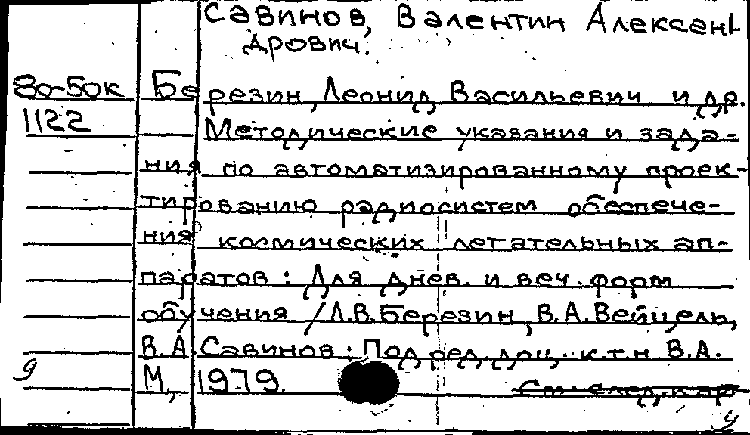 Савинов, Валентин Алексан
дрович.
80-50к Березин, Леонид Васильевич и др.
1122 Методические указания и зада-
ния по автоматизированному проек-
тированию радиосистем обеспече-
ния космических летательных ап-
паратов: Для днев. и веч. форм
обучения / Л.В. Березин, В.А. Вейцель,
В.А. Савинов; Под ред. доц. к.т.н В.А.
М., 1979. См. след. кар